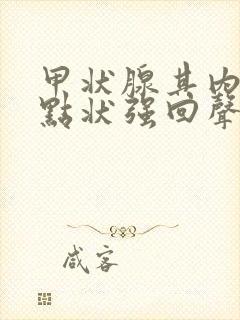 甲状腺其内
點状强回聲
咸客